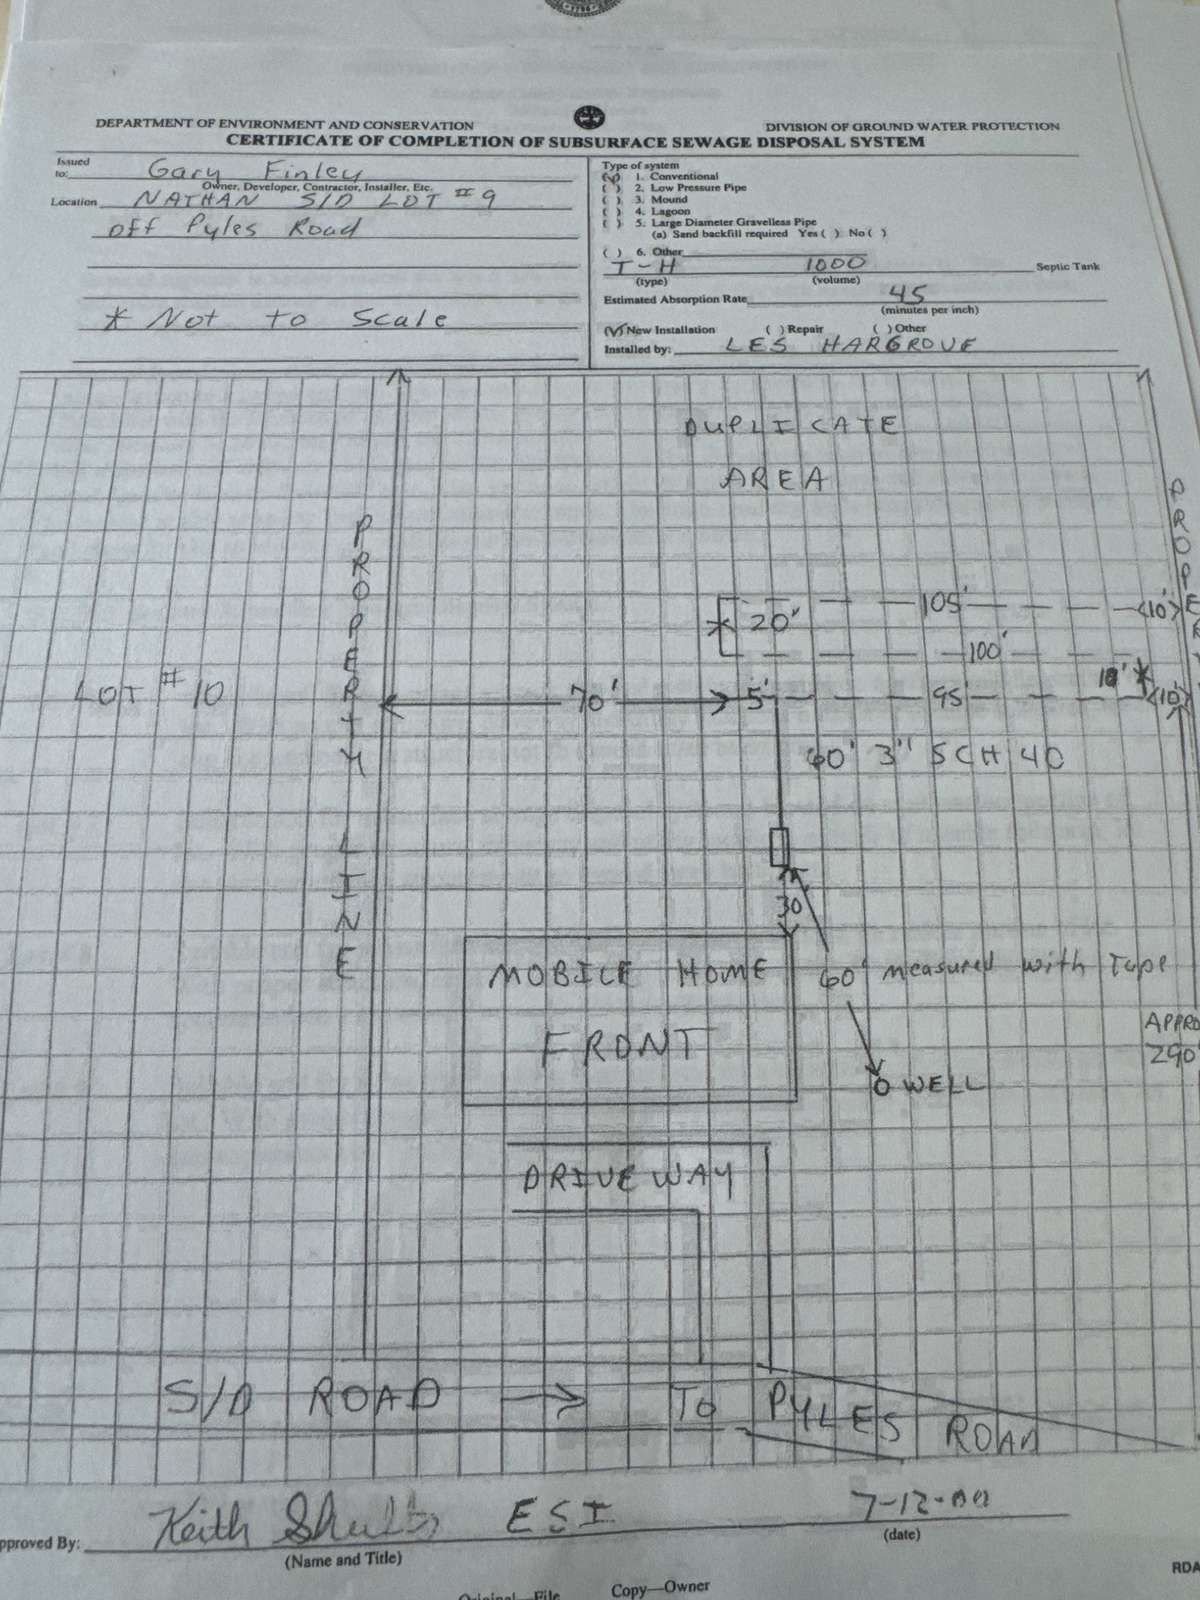 1796
DEPARTMENT OF ENVIRONMENT AND CONSERVATION
DIVISION OF GROUND WATER PROTECTION
CERTIFICATE OF COMPLETION OF SUBSURFACE SEWAGE DISPOSAL SYSTEM
Issued to: Gary Finley
Owner, Developer, Contractor, Installer, Etc.
Location NATHAN S/D LOT #9
off Pyles Road
* Not to Scale
Type of system
(✓) 1. Conventional
( ) 2. Low Pressure Pipe
( ) 3. Mound
( ) 4. Lagoon
( ) 5. Large Diameter Gravelless Pipe
(a) Sand backfill required Yes ( ) No ( )
( ) 6. Other
T-H 1000 Septic Tank
(type) (volume)
Estimated Absorption Rate 45
(minutes per inch)
(✓) New Installation ( ) Repair ( ) Other
Installed by: LES HARGROVE
DUPLICATE
AREA
PROPERTY LINE
PROPER
105'
<10'>
* 20'
100'
10' *
LOT #10
70'
5'
95'
<10'
60' 3" SCH 40
30
MOBILE HOME
FRONT
60' measured with Tape
APPRO
290'
O WELL
DRIVEWAY
S/D ROAD → TO PYLES ROAD
pproved By: Keith Shults ESI 7-12-00
(Name and Title) (date)
RDA
Original—File Copy—Owner